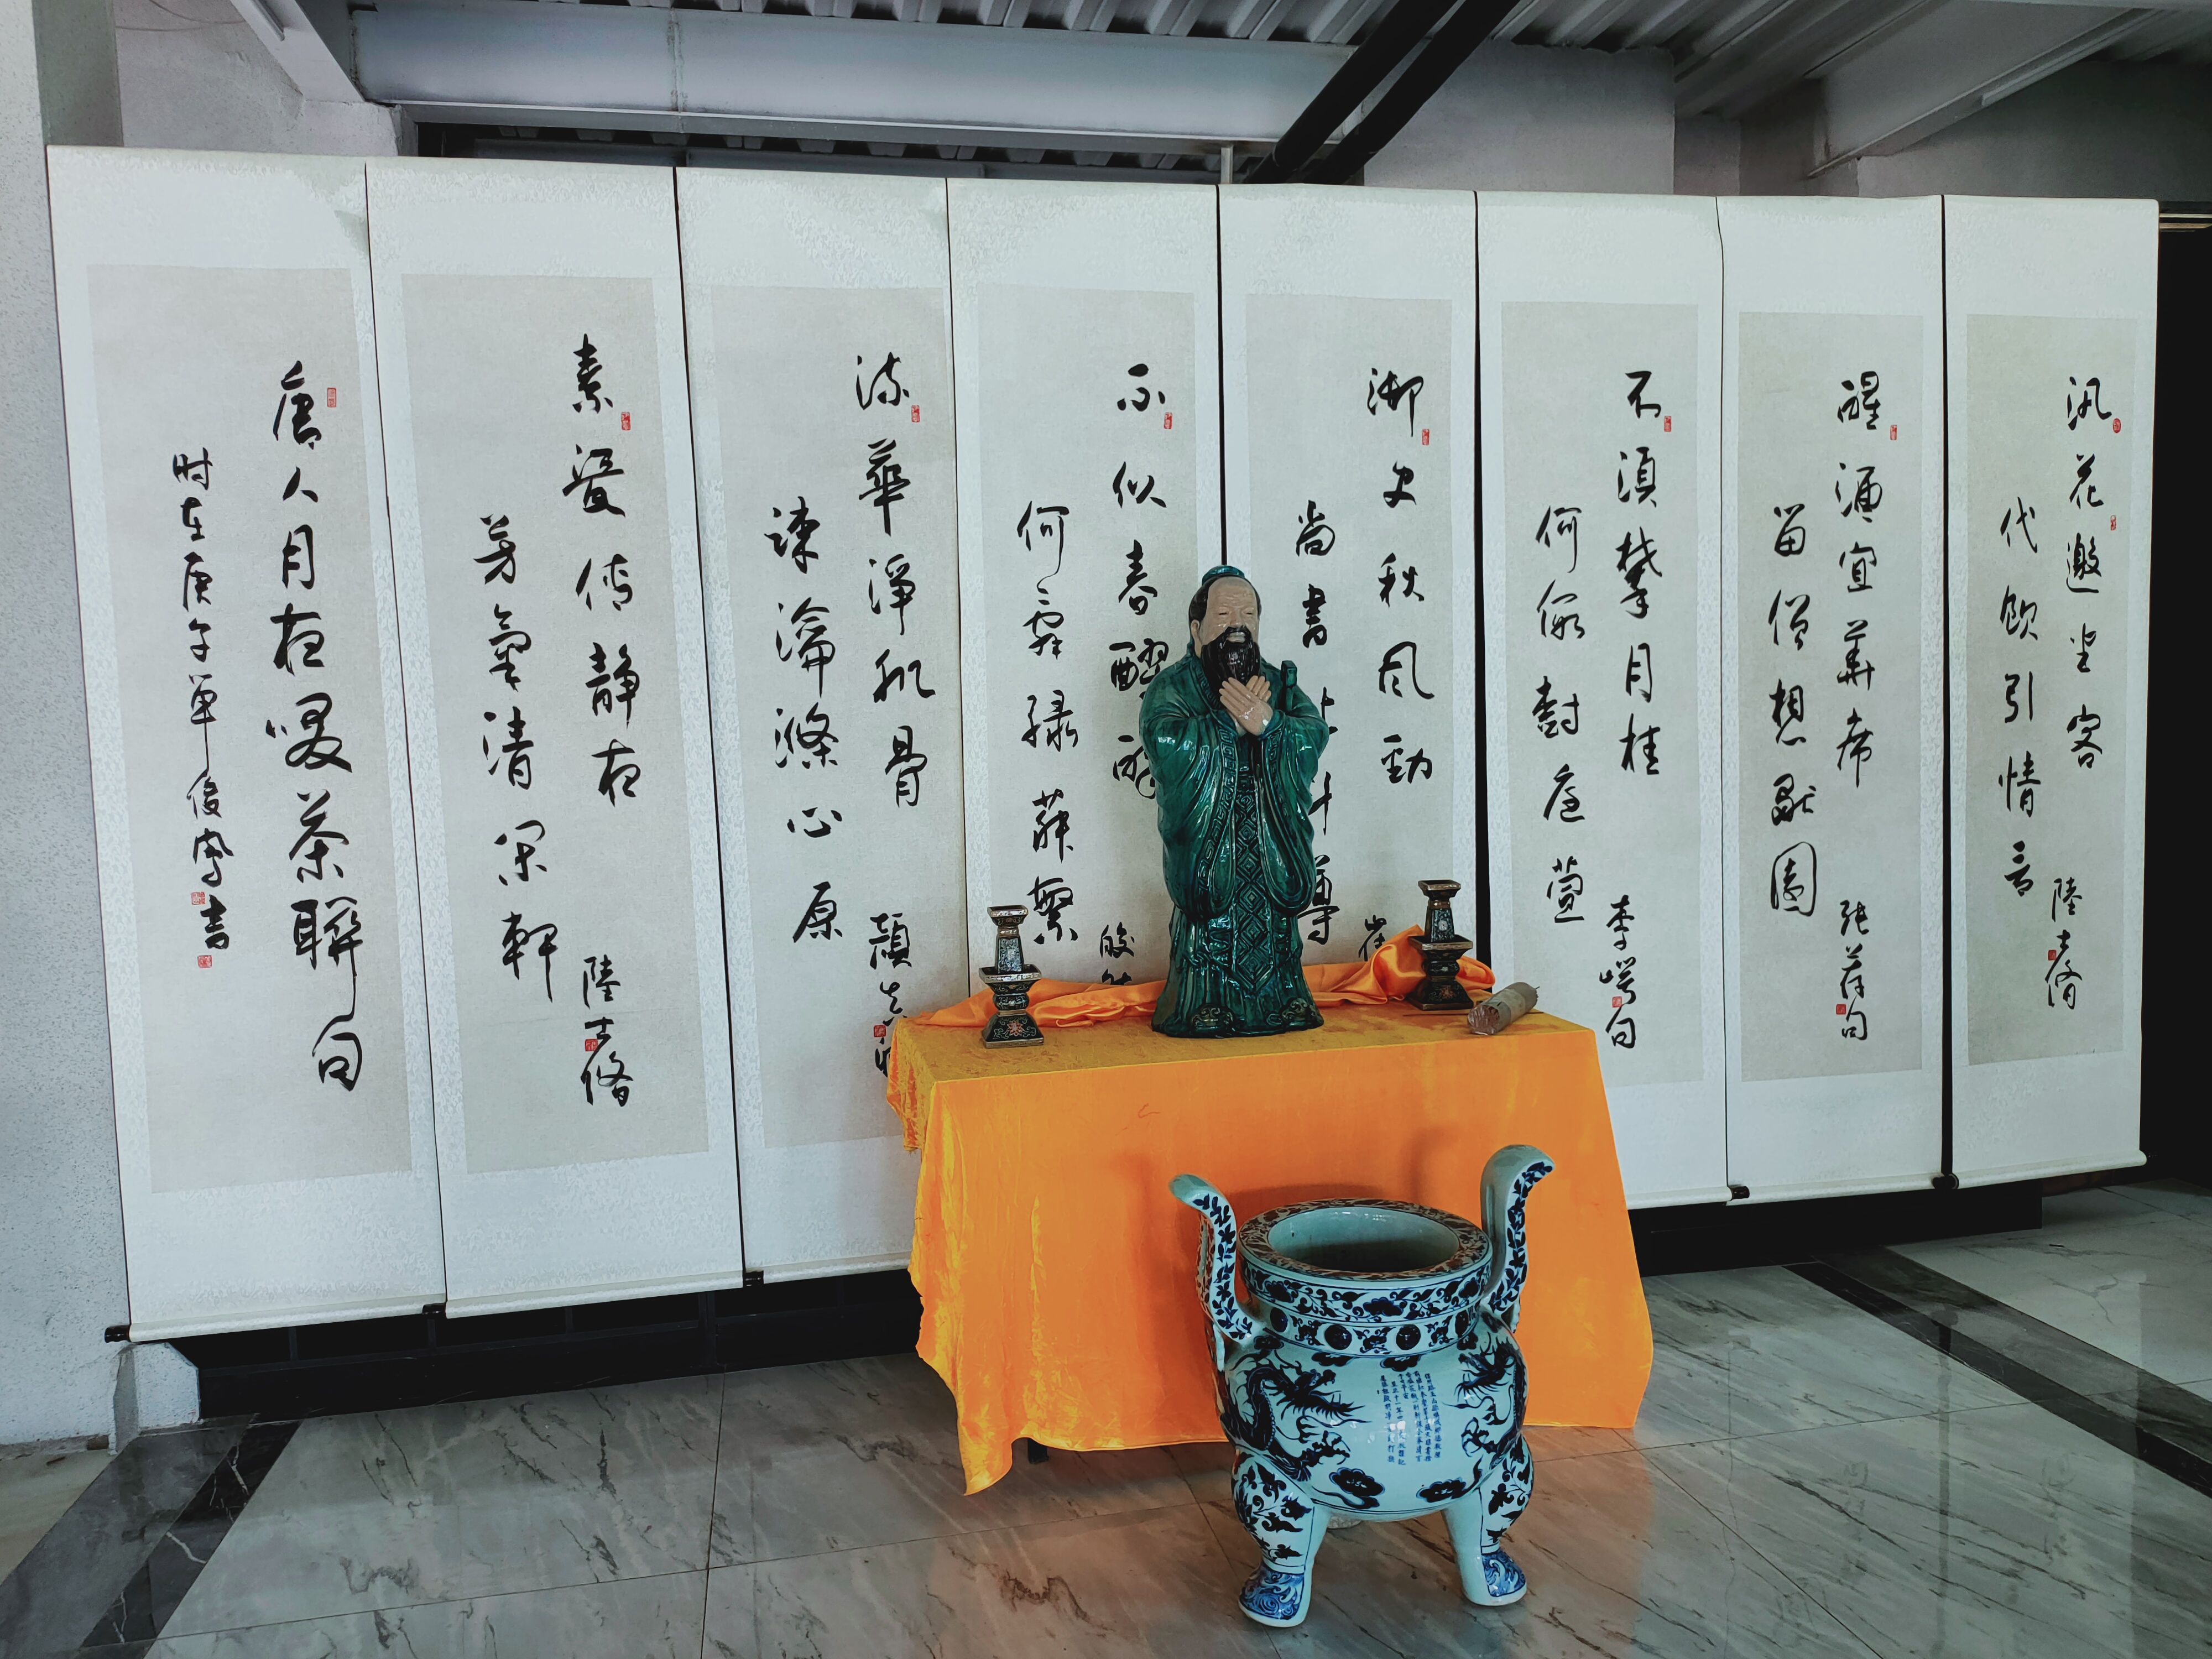 汎花邀坐客
代飲引情言
陸士修
醒酒宜華席
留僧想獸園
張荐句
不須攀月桂
何假樹庭萱
李崿句
御史秋風勁
尚書 斗尊
崔
不似春醪醉
何辭綠 繁
皎
流華淨肌骨
疎瀹滌心原
顏真
素瓷傳静夜
芳氣清閑軒
陸士修
唐人月夜啜茶聯句
时在庚子單俊 書